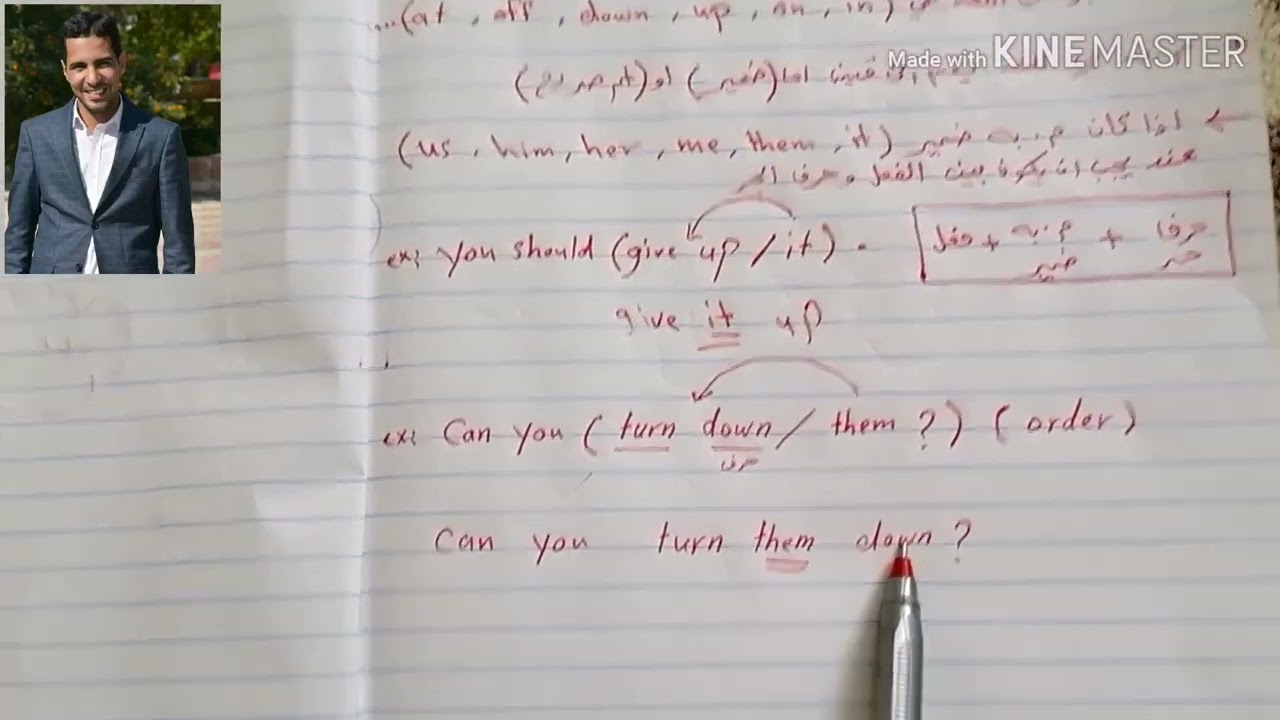 ...(at , off , down , up , on , in)
Made with KINEMASTER
اما (ضمير) او (اسم صريح)
← اذا كان م. به ضمير (us , him , her , me , them , it)
عند يجب ان يكون بين الفعل و حرف الجر
ex: You should (give up / it) .
حرف جر + م. به ضمير + فعل
give it up
ex: Can you ( turn down / them ? ) ( order )
حرف
Can you turn them down ?